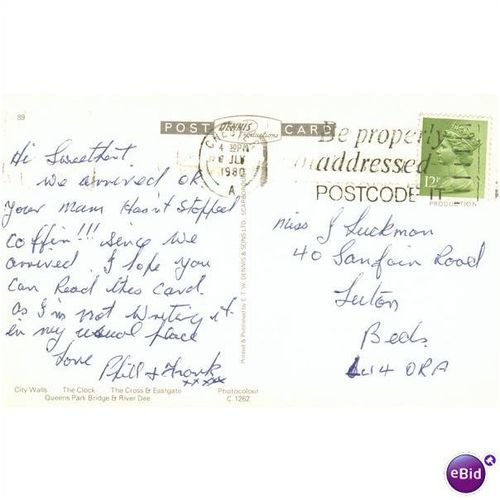 89
POST CARD
DENNIS
Productions
4 30PM
JLY
1980
A
Be properly
addressed
POSTCODE IT
12P
PRODUCTION
Hi Sweethart.
We arrived OK
your Mam Hasn't stopped
coffin!!! since we
arrived. I hope you
can Read this card.
as I'm not writing it
in my usual place
love Phill & Frank
xxxxx
Miss J Luckman
40 Sanfoin Road
Luton
Beds.
LU4 0RA
Printed & Published by E. T. W. DENNIS & SONS LTD. SCARBOROUGH
City Walls The Clock The Cross & Eastgate
Queens Park Bridge & River Dee
Photocolour
C 1262
eBid